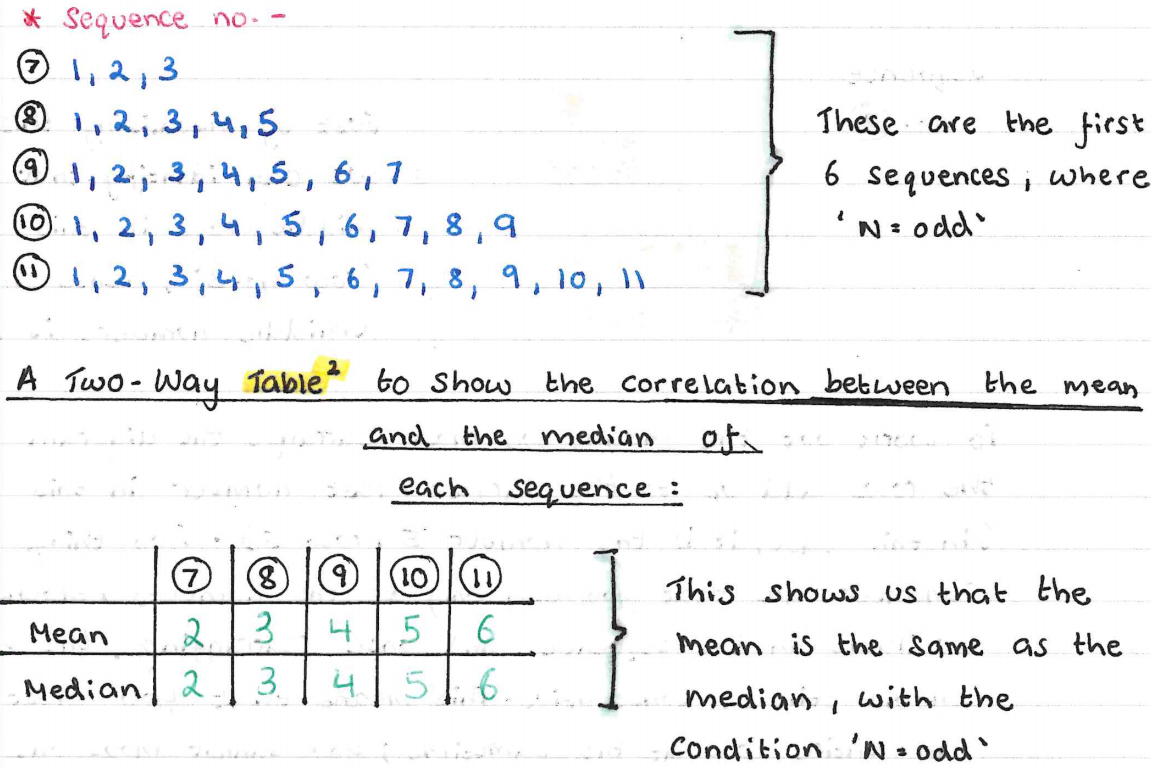 * Sequence no. -
⑦ 1, 2, 3
⑧ 1, 2, 3, 4, 5
⑨ 1, 2, 3, 4, 5, 6, 7
⑩ 1, 2, 3, 4, 5, 6, 7, 8, 9
⑪ 1, 2, 3, 4, 5, 6, 7, 8, 9, 10, 11
These are the first
6 sequences, where
'N = odd`
A Two-Way Table² to show the correlation between the mean
and the median of
each sequence:
⑦ ⑧ ⑨ ⑩ ⑪
Mean 2 3 4 5 6
Median 2 3 4 5 6
This shows us that the
mean is the same as the
median, with the
Condition 'N = odd`